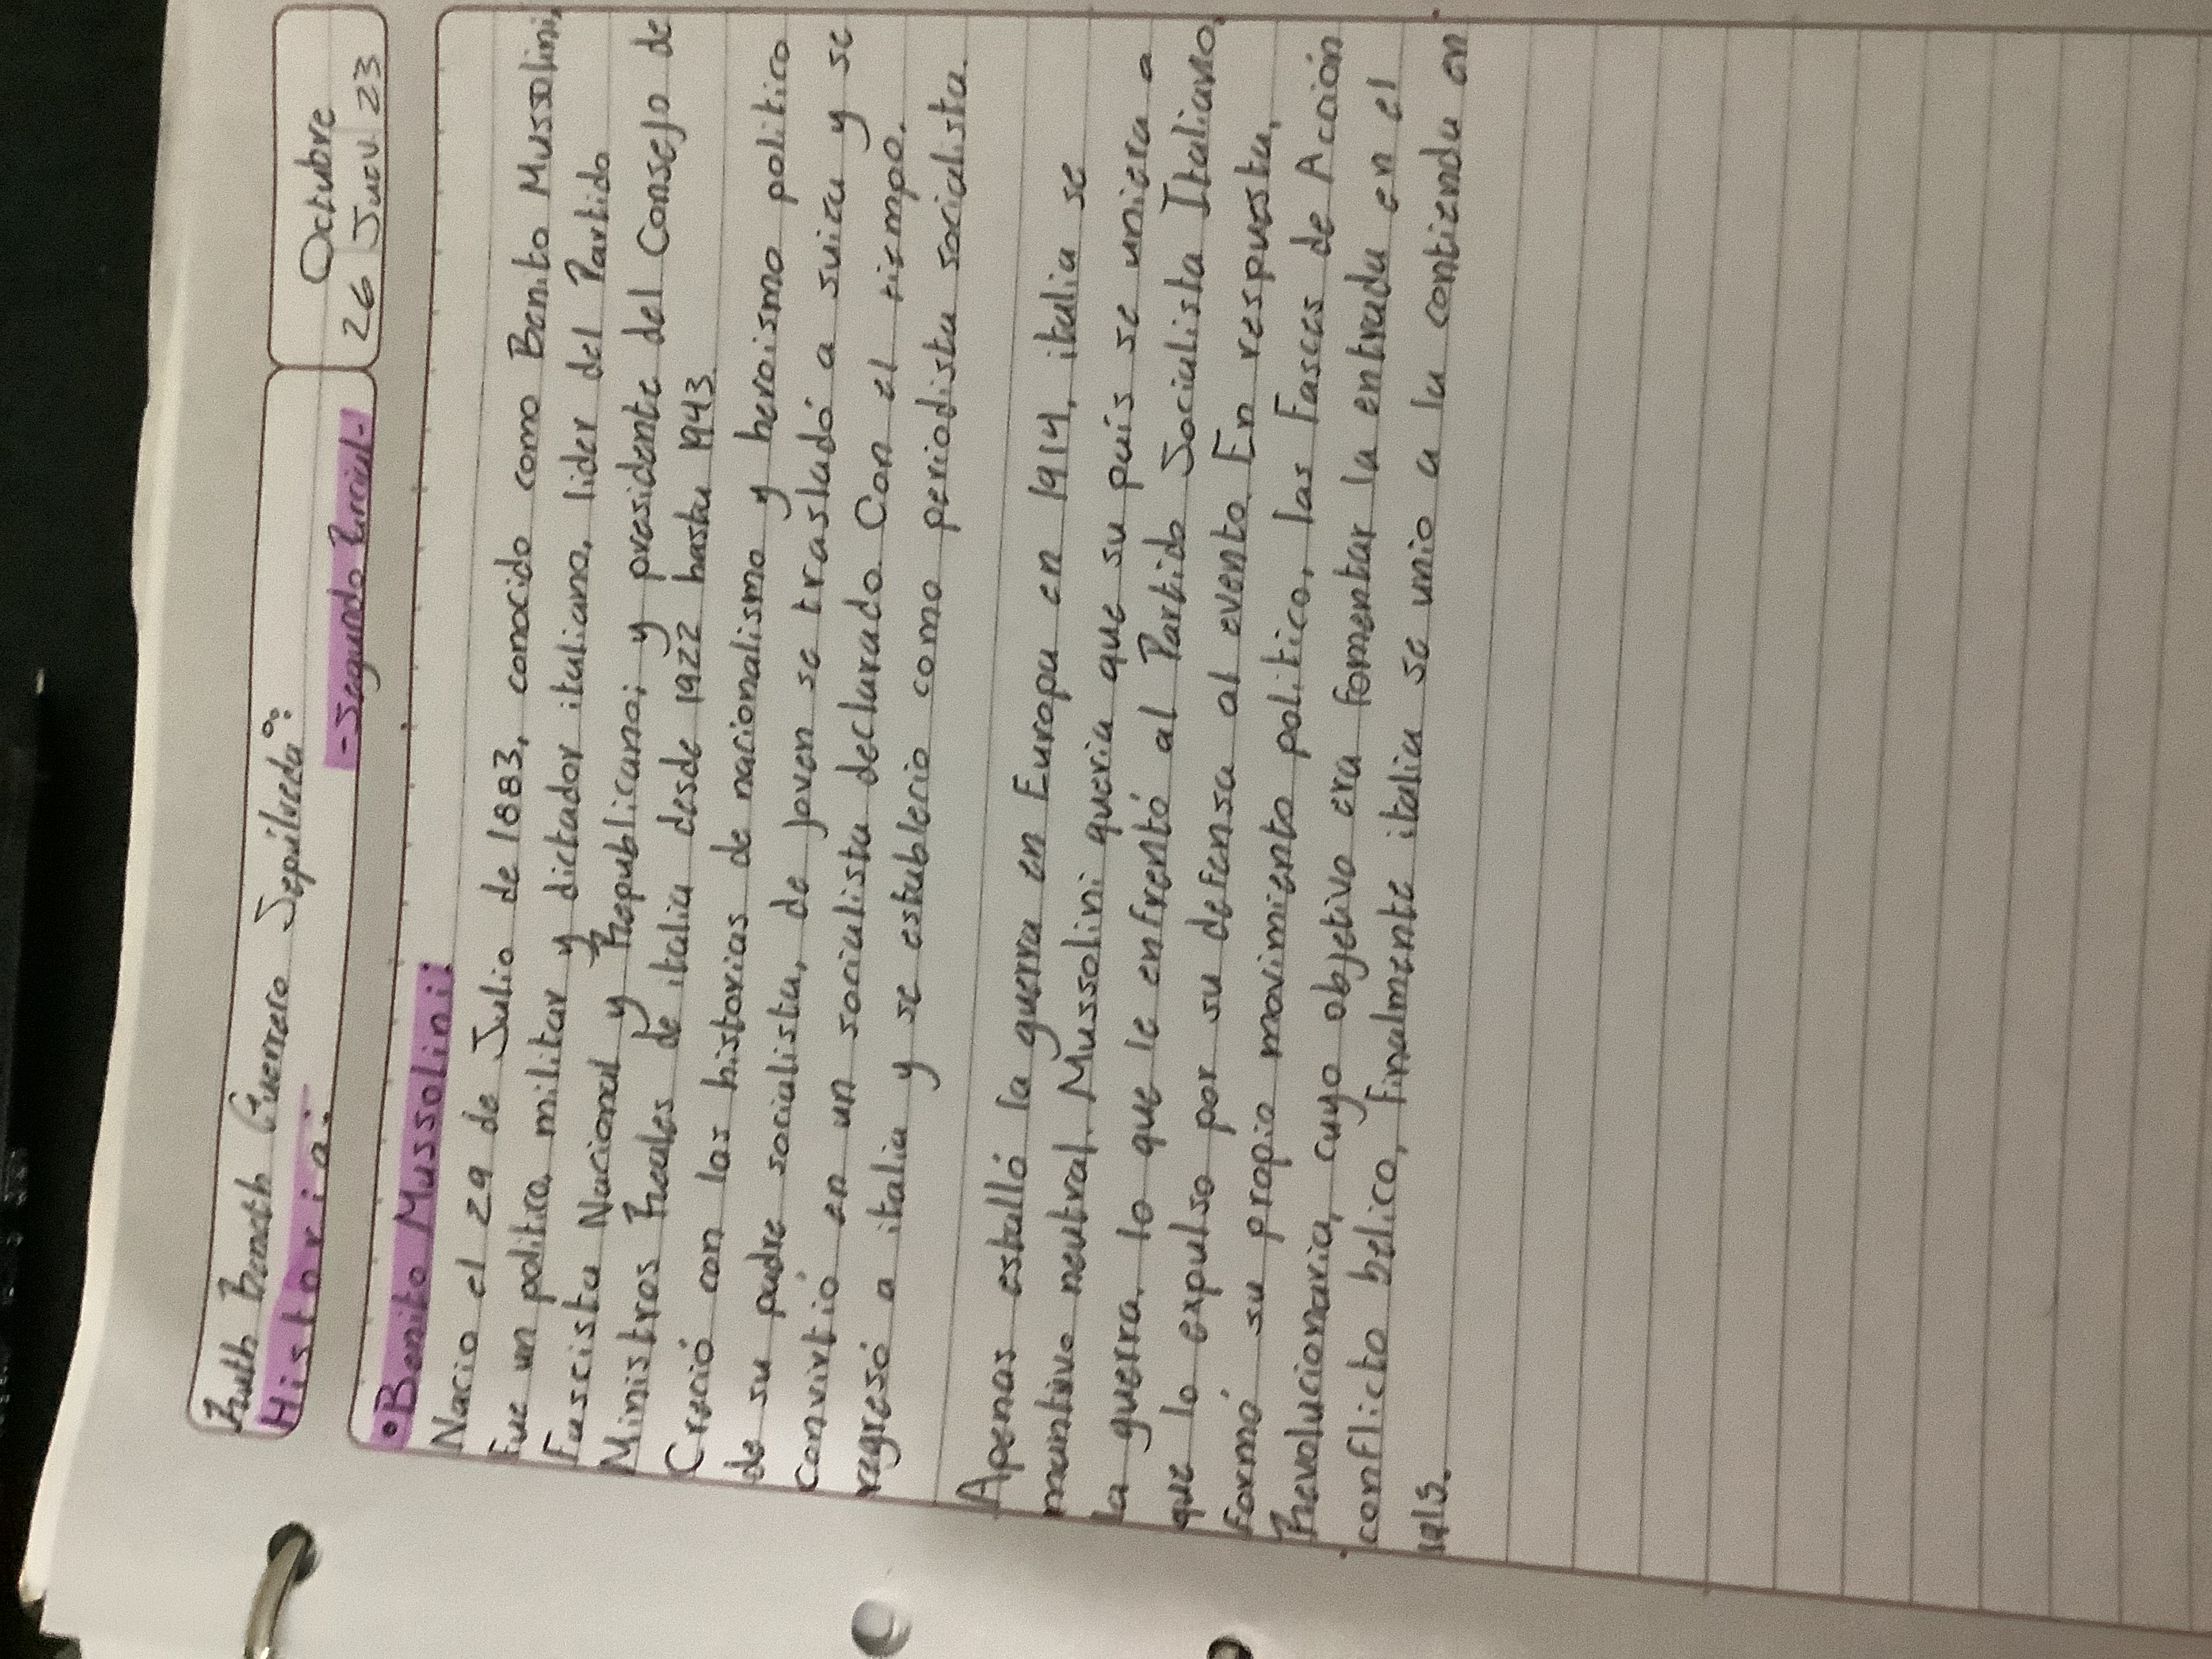 Ruth Guerrero Sepulveda
Octubre
Historia:
26 Juev 23
-Segundo Parcial-
•Benito Mussolini:
Nacio el 29 de Julio de 1883, conocido como Benito Mussolini,
Fue un politico, militar y dictador italiano, lider del Partido
Fascista Nacional y Republicano; y presidente del Consejo de
Ministros Reales de italia desde 1922 hasta 1943.
Creció con las historias de nacionalismo y heroismo politico
de su padre socialista, de joven se trasladó a suiza y se
convirtió en un socialista declarado. Con el tiempo,
regresó a italia y se establecio como periodista socialista.
Apenas estalló la guerra en Europa en 1914, italia se
mantivo neutral. Mussolini queria que su país se uniera a
la guerra, lo que le enfrentó al Partido Socialista Italiano,
que lo expulso por su defensa al evento. En respuesta,
formó su propio movimiento politico, las Fasces de Acción
Revolucionaria, cuyo objetivo era fomentar la entrada en el
conflicto belico, finalmente italia se unio a la contienda en
1915.